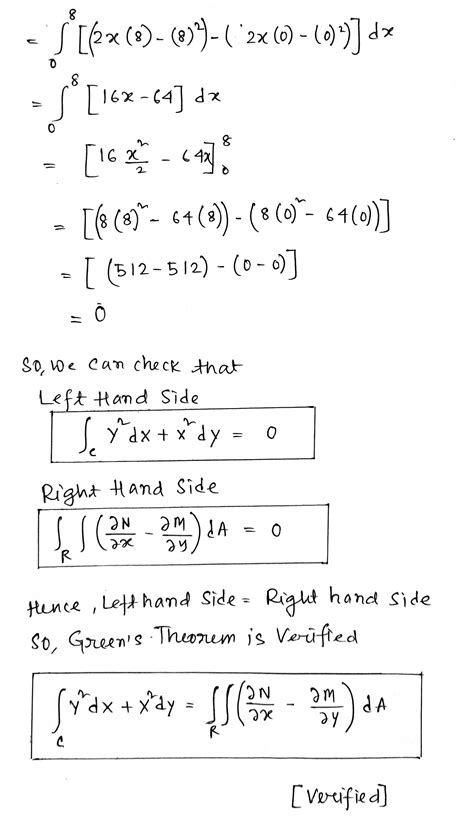 = ∫₀⁸ [(2x(8) - (8)²) - (2x(0) - (0)²)] dx
= ∫₀⁸ [16x - 64] dx
= [16 x²/2 - 64x]₀⁸
= [(8(8)² - 64(8)) - (8(0)² - 64(0))]
= [(512 - 512) - (0 - 0)]
= 0
So, we can check that
Left Hand Side
∫_c y²dx + x²dy = 0
Right Hand Side
∫_R ∫ (∂N/∂x - ∂M/∂y) dA = 0
Hence, Left hand side = Right hand side
So, Green's Theorem is Verified
∫_c y²dx + x²dy = ∫∫_R (∂N/∂x - ∂M/∂y) dA
[Verified]